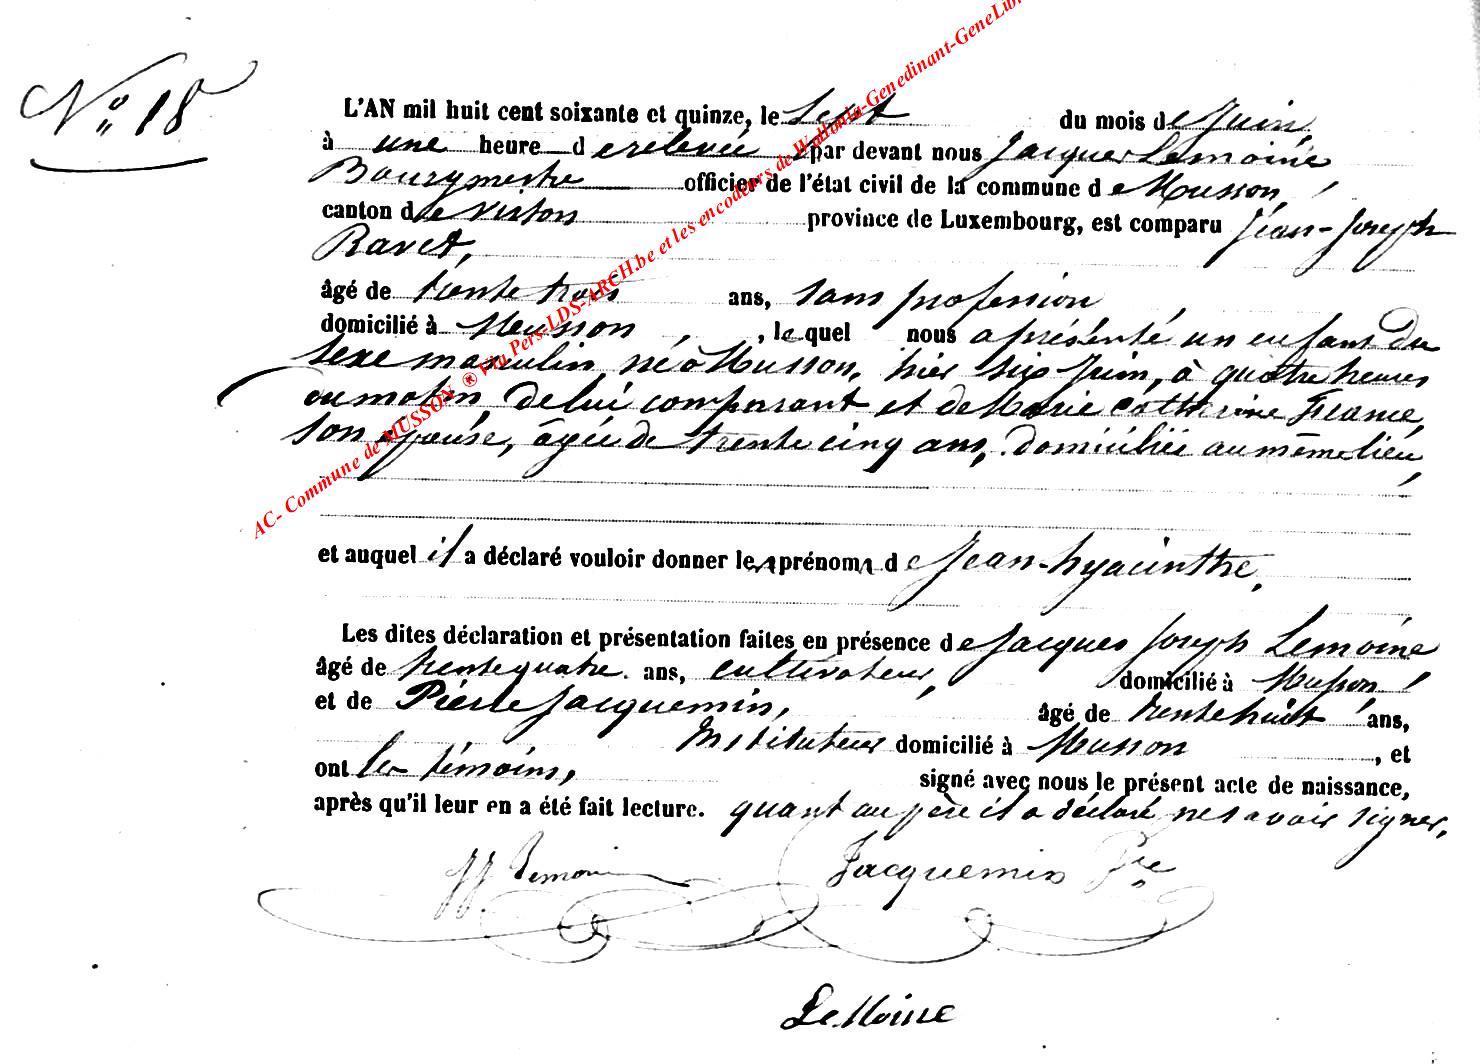 N° 18
L'AN mil huit cent soixante et quinze, le Sept du mois de Juin,
à une heure de relevée par devant nous Jacques Lemoine
Bourgmestre officier de l'état civil de la commune de Musson,
canton de Virton province de Luxembourg, est comparu Jean-Joseph
Ravet,
âgé de trente trois ans, sans profession
domicilié à Musson, lequel nous a présenté un enfant du
sexe masculin né à Musson, hier six Juin, à quatre heures
du matin, de lui comparant et de Marie Catherine France,
son épouse, âgée de trente cinq ans, domiciliée au même lieu,
et auquel il a déclaré vouloir donner les prénoms de Jean-hyacinthe,
Les dites déclaration et présentation faites en présence de Jacques Joseph Lemoine
âgé de trente quatre ans, cultivateur, domicilié à Musson,
et de Pierre Jacquemin, âgé de trente huit ans,
Instituteur domicilié à Musson, et
ont les témoins, signé avec nous le présent acte de naissance,
après qu'il leur en a été fait lecture. quant au père il a déclaré ne savoir signer,
JJ Lemoine Jacquemin Pre
LeMoine
AC- Commune de MUSSON ® Via Pers-LDS-ARCH.be et les encodeurs de Wallonia-Genedinant-GeneLib